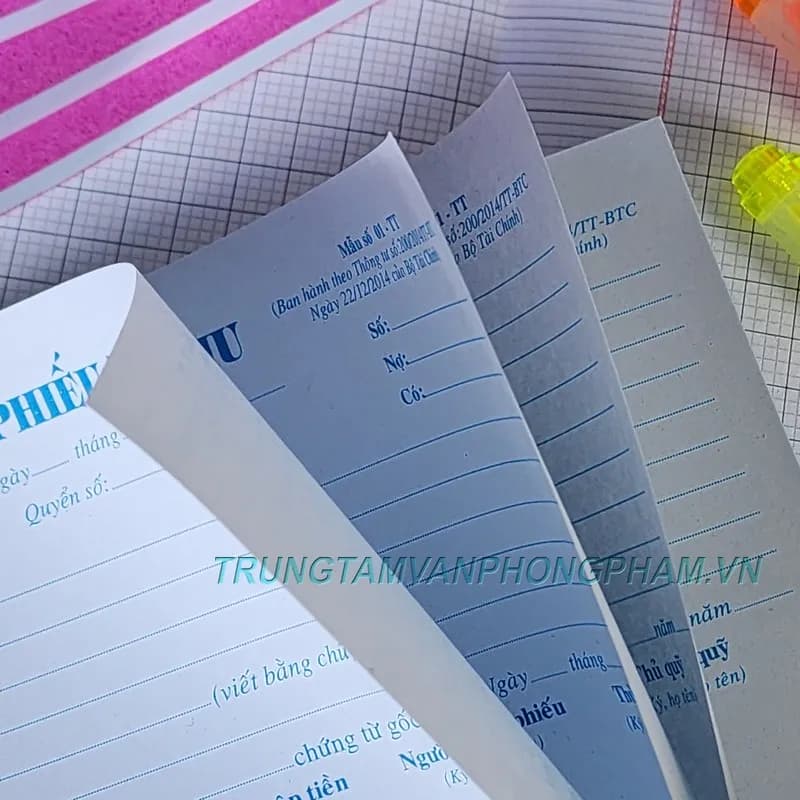 PHIẾU
ngày tháng
Quyển số:
(viết bằng chữ
chứng từ gốc
tiền
Người
(Ký
Mẫu số 01 - TT
(Ban hành theo Thông tư số:200/2014/TT-BTC
Ngày 22/12/2014 của Bộ Tài Chính)
HU
Số:
Nợ:
Có:
Ngày tháng
phiếu
1 - TT
số:200/2014/TT-BTC
Bộ Tài Chính)
năm
Thủ quỹ
(Ký, họ tên)
/TT-BTC
ính)
năm
quỹ
tên)
TRUNGTAMVANPHONGPHAM.VN